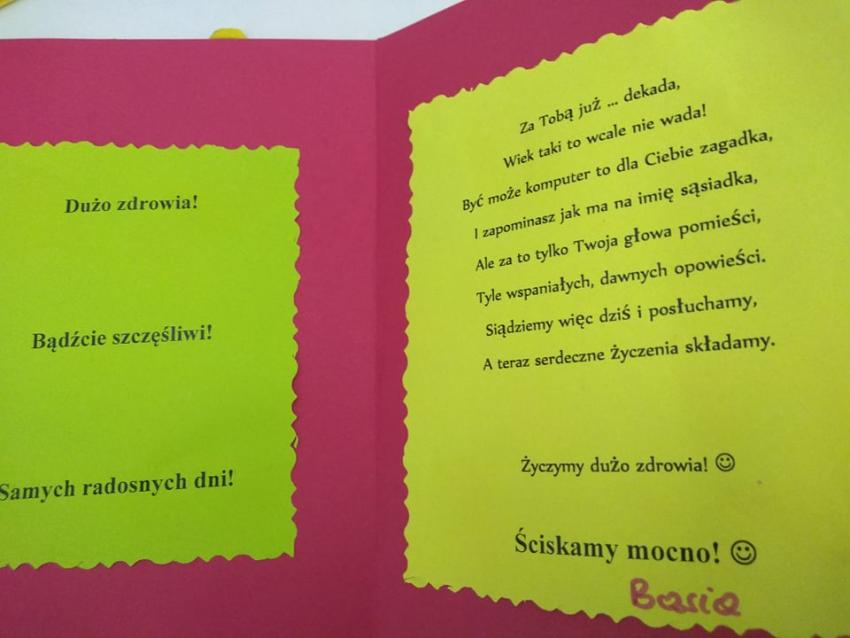 Dużo zdrowia!
Bądźcie szczęśliwi!
Samych radosnych dni!
Za Tobą już ... dekada,
Wiek taki to wcale nie wada!
Być może komputer to dla Ciebie zagadka,
I zapominasz jak ma na imię sąsiadka,
Ale za to tylko Twoja głowa pomieści,
Tyle wspaniałych, dawnych opowieści.
Siądziemy więc dziś i posłuchamy,
A teraz serdeczne życzenia składamy.
Życzymy dużo zdrowia! ☺
Ściskamy mocno! ☺
Basia